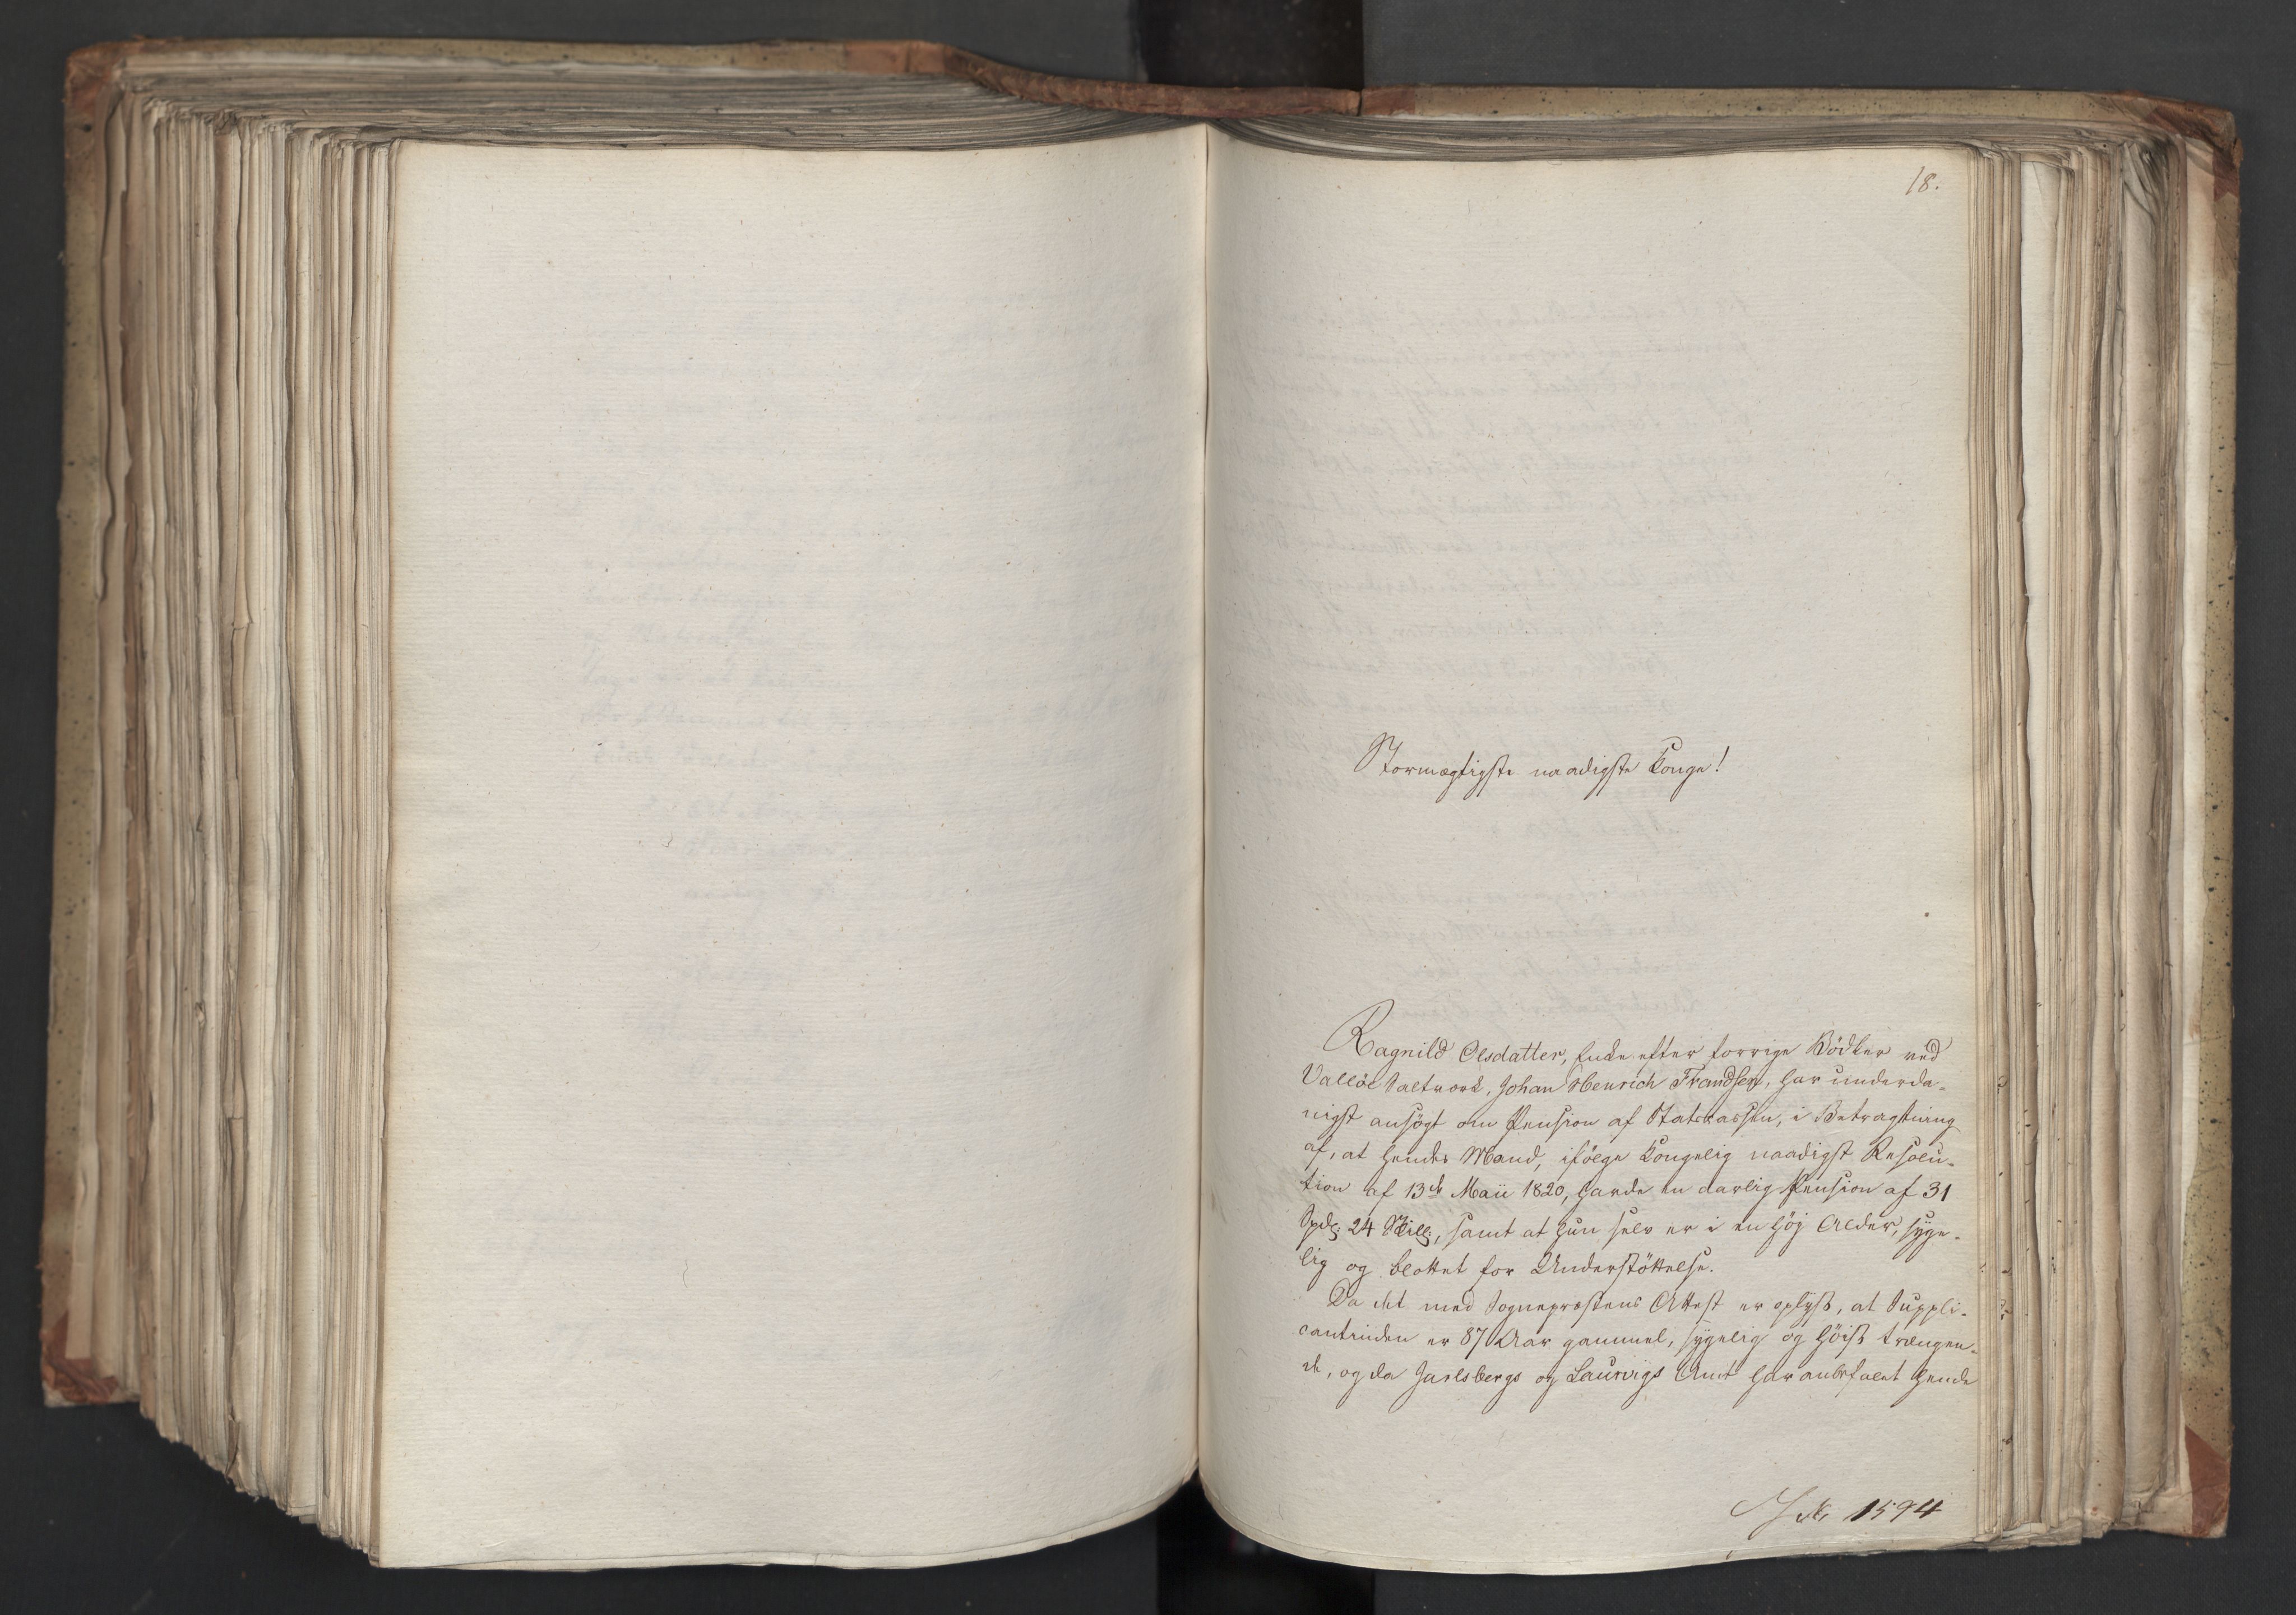 18.
Stormægtigste naadigste Konge!
Ragnild Olsdatter, Enke efter forrige Bödker ved
Vallöe Saltværk, Johan Henrich Frandsen, har underda-
nigst ansögt om Pension af Statskassen, i Betragtning
af, at hendes Mand, ifölge Kongelig naadigst Resolu-
tion af 13de Maii 1820, havde en aarlig Pension af 31
Spd: 24 Skill:, samt at hun selv er i en höj Alder, syge-
lig og blottet for Understöttelse.
Da det med Sognepræstens Attest er oplyst, at Suppli-
cantinden er 87 Aar gammel, sygelig og höist trængen-
de, og da Jarlsbergs og Laurvigs Amt har anbefalet hende
No 1594